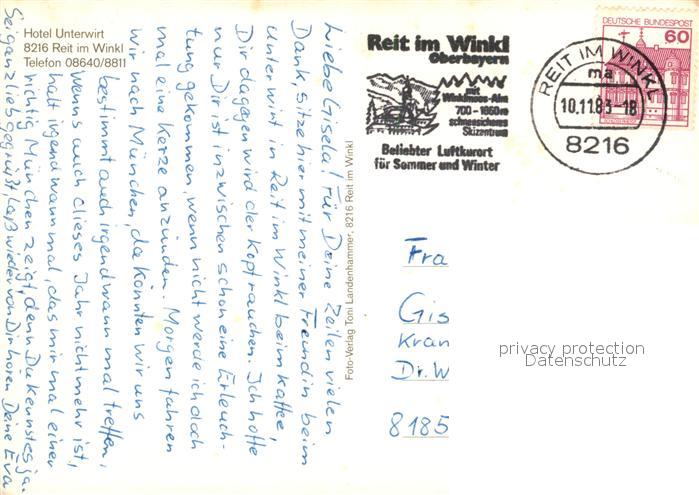 Hotel Unterwirt
8216 Reit im Winkl
Telefon 08640/8811
Liebe Gisela! Für Deine Zeilen vielen
Dank. Sitze hier mit meiner Freundin beim
Unterwirt in Reit im Winkl beim Kaffee,
Dir dagegen wird der Kopf rauchen. Ich hoffe
nur Dir ist inzwischen schon eine Erleuch-
tung gekommen, wenn nicht werde ich doch
mal eine Kerze anzünden. Morgen fahren
wir nach München, da könnten wir uns
bestimmt auch irgendwann mal treffen,
wenn's auch dieses Jahr nicht mehr ist,
halt irgendwann mal, das mir mal einer
richtig München zeigt, denn Du kennst es ja.
Sei ganz lieb gegrüßt, laß wieder von Dir hören. Deine Eva
Foto-Verlag Toni Landenhammer, 8216 Reit im Winkl
Reit im Winkl
Oberbayern
mit
Winklmoos-Alm
700 - 1860m
schneesicheres
Skizentrum
Beliebter Luftkurort
für Sommer und Winter
REIT IM WINKL
ma
10.11.83-18
8216
DEUTSCHE BUNDESPOST
60
Fra
Gis
Kran
Dr. W
8185
privacy protection
Datenschutz